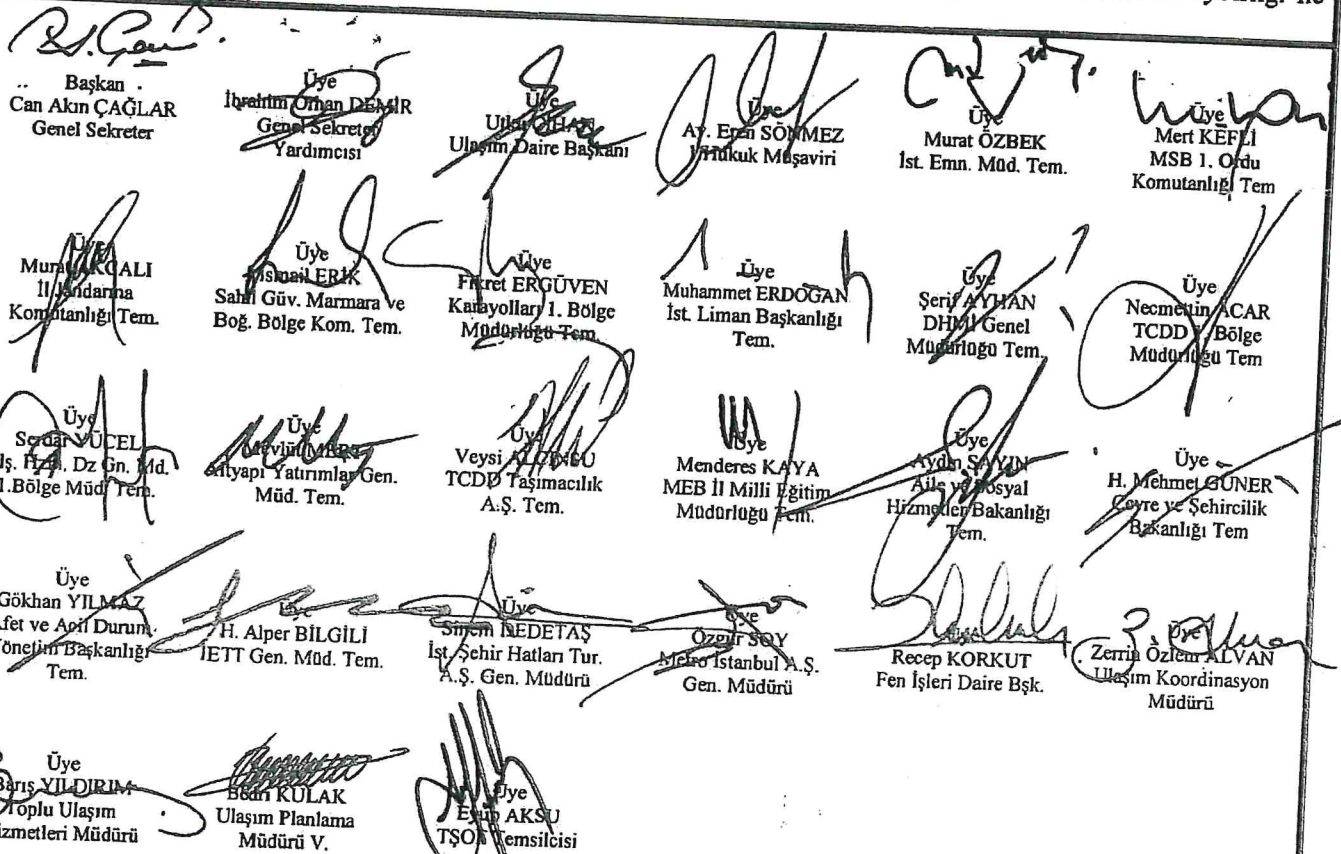 ile
Başkan
Can Akın ÇAĞLAR
Genel Sekreter
Üye
İbrahim Orhan DEMİR
Genel Sekreter
Yardımcısı
Üye
Utku CİHAN
Ulaşım Daire Başkanı
Üye
Av. Eren SÖNMEZ
1.Hukuk Müşaviri
Üye
Murat ÖZBEK
İst. Emn. Müd. Tem.
Üye
Mert KEFLİ
MSB 1. Ordu
Komutanlığı Tem
Üye
Murat AKÇALI
İl Jandarma
Komutanlığı Tem.
Üye
İsmail ERİK
Sahil Güv. Marmara ve
Boğ. Bölge Kom. Tem.
Üye
Fikret ERGÜVEN
Karayolları 1. Bölge
Müdürlüğü Tem.
Üye
Muhammet ERDOĞAN
İst. Liman Başkanlığı
Tem.
Üye
Şerif AYHAN
DHMİ Genel
Müdürlüğü Tem.
Üye
Necmettin ACAR
TCDD 1. Bölge
Müdürlüğü Tem
Üye
Serdar YÜCEL
Dz Gn. Md.
1.Bölge Müd. Tem.
Üye
Mevlüt MERT
Altyapı Yatırımlar Gen.
Müd. Tem.
Üye
Veysi
TCDD Taşımacılık
A.Ş. Tem.
Üye
Menderes KAYA
MEB İl Milli Eğitim
Müdürlüğü Tem.
Üye
Aydın SAYIN
Aile ve Sosyal
Hizmetler Bakanlığı
Tem.
Üye
H. Mehmet GÜNER
Çevre ve Şehircilik
Bakanlığı Tem
Üye
Gökhan YILMAZ
Afet ve Acil Durum
Yönetim Başkanlığı
Tem.
Üye
H. Alper BİLGİLİ
İETT Gen. Müd. Tem.
Üye
Sinem DEDETAŞ
İst. Şehir Hatları Tur.
A.Ş. Gen. Müdürü
Üye
Özgür SOY
Metro İstanbul A.Ş.
Gen. Müdürü
Recep KORKUT
Fen İşleri Daire Bşk.
Üye
Zerrin Özlem ALVAN
Ulaşım Koordinasyon
Müdürü
Üye
Barış YILDIRIM
Toplu Ulaşım
Hizmetleri Müdürü
Bedri KULAK
Ulaşım Planlama
Müdürü V.
Üye
Eyüp AKSU
TŞOF Temsilcisi